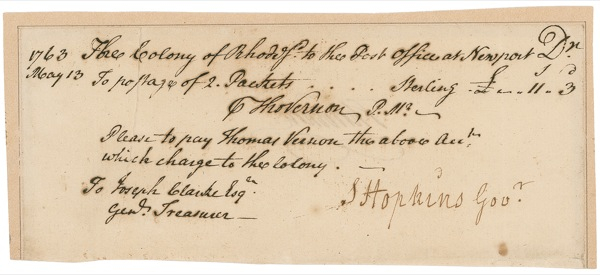 1763 The Colony of Rhode Isld. to the Post Office at Newport Dr.
May 13 To postage of 2. Packets . . . . Sterling £ „ .. 11 .. 3
s d
Tho Vernon P. Mr.
Please to pay Thomas Vernon the above Acct.
which charge to the Colony.
To Joseph Clarke Esqr.
Genl. Treasurer
S Hopkins Govr.